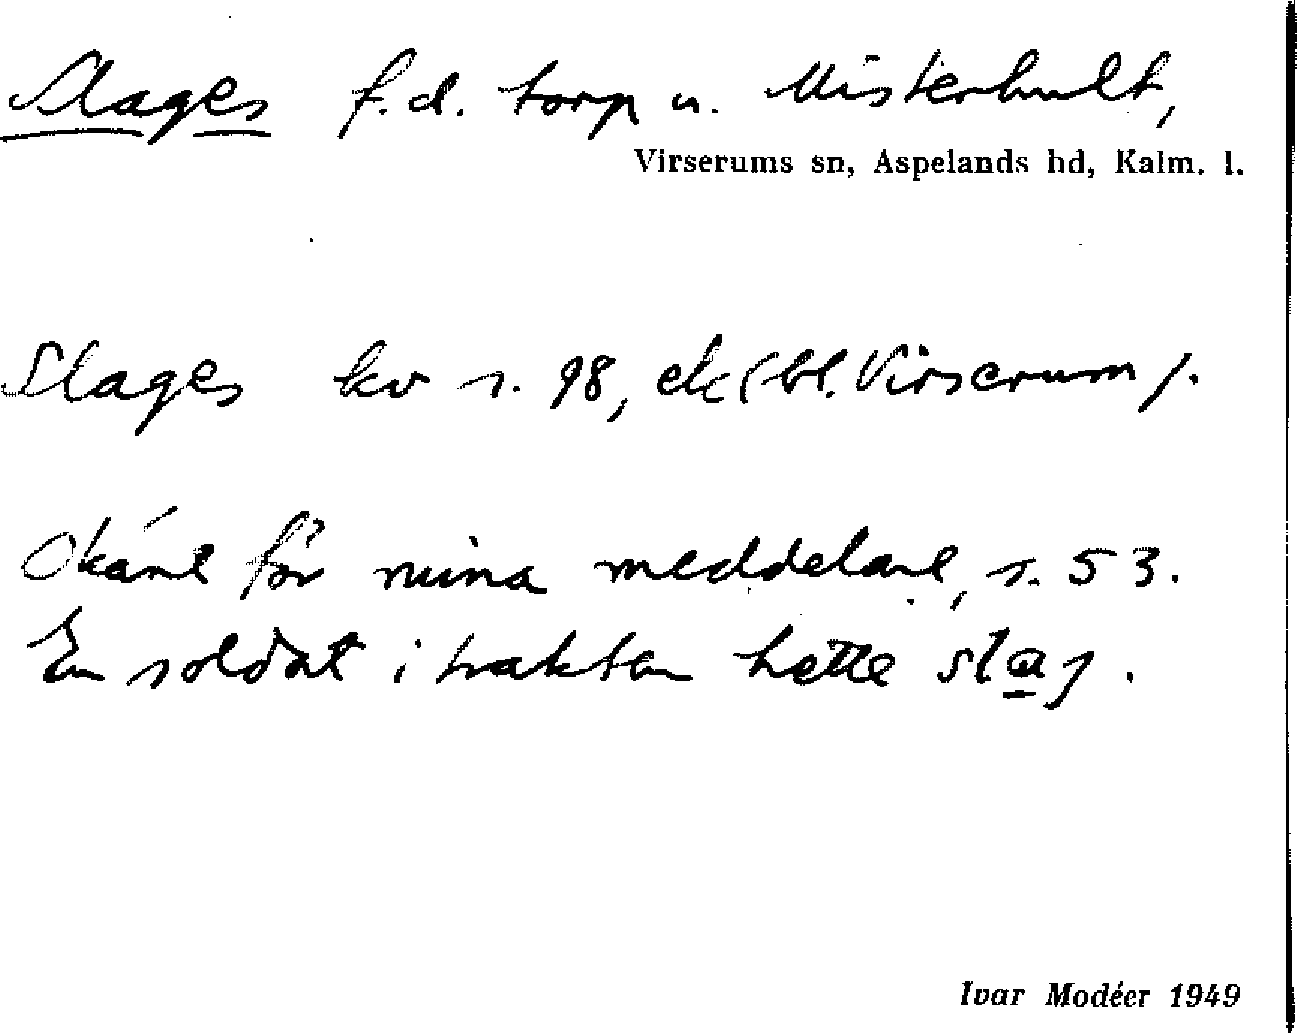 Slages f.d. torp u. Misterhult,
Virserums sn, Aspelands hd, Kalm. l.
Slages kv s. 98, ek (bl. Virserum).
Okänt för mina meddelare, s. 53.
En soldat i trakten hette slag.
Ivar Modéer 1949